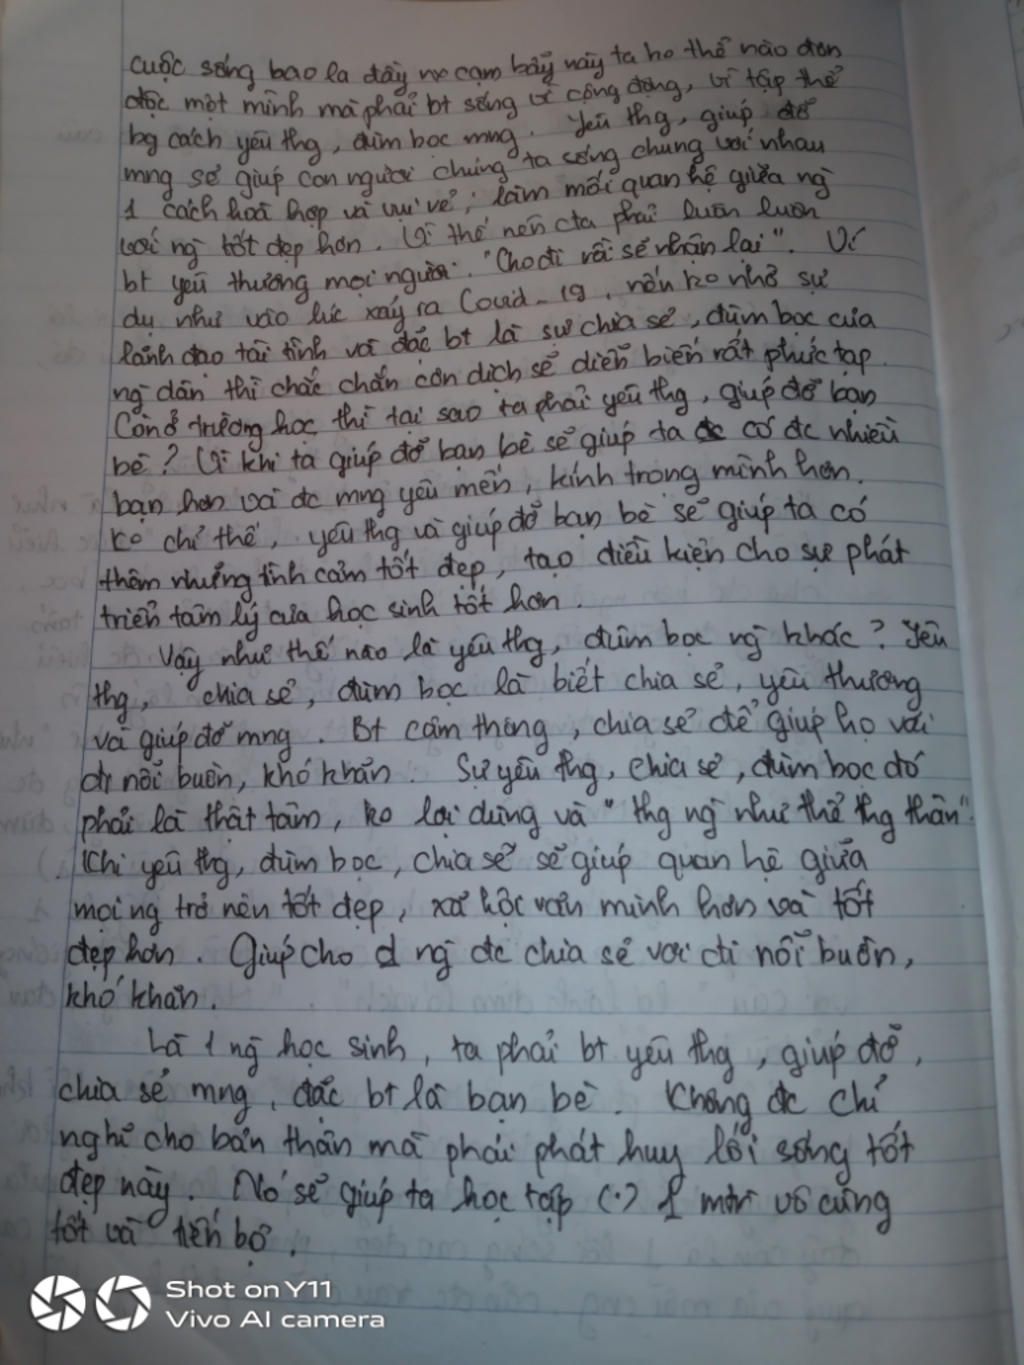 cuộc sống bao la đầy nx cạm bẫy này ta ko thể nào đơn
độc một mình mà phải bt sống vì cộng đồng, vì tập thể
bg cách yêu thg, đùm bọc mng. Yêu thg, giúp đỡ
mng sẽ giúp con người chúng ta sống chung với nhau
1 cách hoà hợp và vui vẻ, làm mối quan hệ giữa ng
với ng tốt đẹp hơn. Vì thế nên cta phải luôn luôn
bt yêu thương mọi người. "Cho đi rồi sẽ nhận lại". Ví
dụ như vào lúc xảy ra Covid-19, nếu ko nhờ sự
lãnh đạo tài tình và đặc bt là sự chia sẻ, đùm bọc của
ng dân thì chắc chắn cơn dịch sẽ diễn biến rất phức tạp.
Còn ở trường học thì tại sao ta phải yêu thg, giúp đỡ bạn
bè? Vì khi ta giúp đỡ bạn bè sẽ giúp ta có đc nhiều
bạn hơn và đc mng yêu mến, kính trọng mình hơn.
Ko chỉ thế, yêu thg và giúp đỡ bạn bè sẽ giúp ta có
thêm những tình cảm tốt đẹp, tạo điều kiện cho sự phát
triển tâm lý của học sinh tốt hơn.
Vậy như thế nào là yêu thg, đùm bọc ng khác? Yêu
thg, chia sẻ, đùm bọc là biết chia sẻ, yêu thương
và giúp đỡ mng. Bt cảm thông, chia sẻ để giúp họ vơi
đi nỗi buồn, khó khăn. Sự yêu thg, chia sẻ, đùm bọc đó
phải là thật tâm, ko lợi dụng và "thg ng như thể thg thân".
Khi yêu thg, đùm bọc, chia sẻ sẽ giúp quan hệ giữa
mọi ng trở nên tốt đẹp, xã hội văn minh hơn và tốt
đẹp hơn. Giúp cho ng đc chia sẻ vơi đi nỗi buồn,
khó khăn.
Là 1 ng học sinh, ta phải bt yêu thg, giúp đỡ,
chia sẻ mng, đặc bt là bạn bè. Không đc chỉ
nghĩ cho bản thân mà phải phát huy lối sống tốt
đẹp này. Nó sẽ giúp ta học tập (.) 1 mtr vô cùng
tốt và tiến bộ.
Shot on Y11
Vivo AI camera